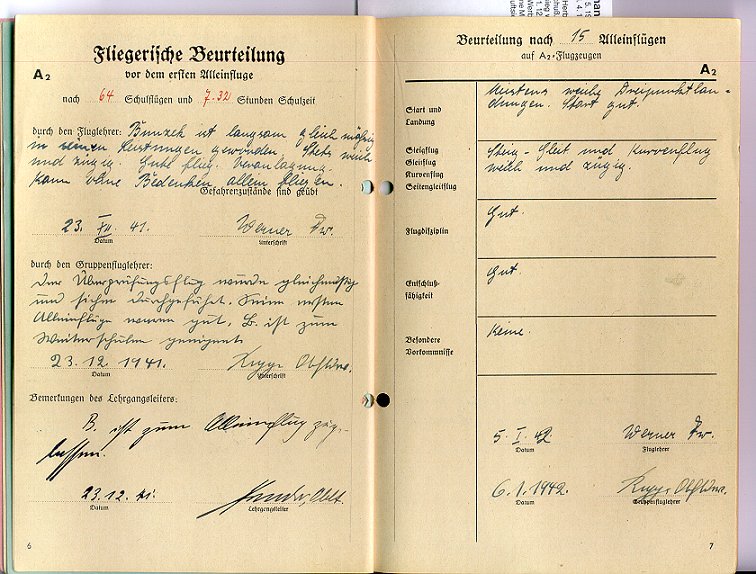 Fliegerische Beurteilung
A2
vor dem ersten Alleinfluge
nach 64 Schulflügen und 7.32 Stunden Schulzeit
durch den Fluglehrer: Bunzek ist langsam gleichmäßig
in seinen Leistungen geworden. Stets weich
und zügig. Gute flieg. Veranlagung.
Kann ohne Bedenken allein fliegen.
Gefahrenzustände sind geübt
23. XII. 41. Werner Fw.
Datum Unterschrift
durch den Gruppenfluglehrer:
Der Überprüfungsflug wurde gleichmäßig
und sicher durchgeführt. Seine ersten
Alleinflüge waren gut. B. ist zum
Weiterschulen geeignet.
23.12.1941.
Datum Unterschrift
Bemerkungen des Lehrgangsleiters:
B. ist zum Alleinflug zuge-
lassen.
23.12.41. Oblt.
Datum Lehrgangsleiter
6
Beurteilung nach 15 Alleinflügen
auf A2-Flugzeugen
A2
Start und
Landung
Meistens weiche Dreipunktlan-
dungen. Start gut.
Steigflug
Gleitflug
Kurvenflug
Seitengleitflug
Steig- Gleit und Kurvenflug
weich und zügig.
Flugdisziplin
Gut.
Entschluß-
fähigkeit
Gut.
Besondere
Vorkommnisse
Keine.
5. I. 42. Werner Fw.
Datum Fluglehrer
6.1.1942.
Datum Gruppenfluglehrer
7